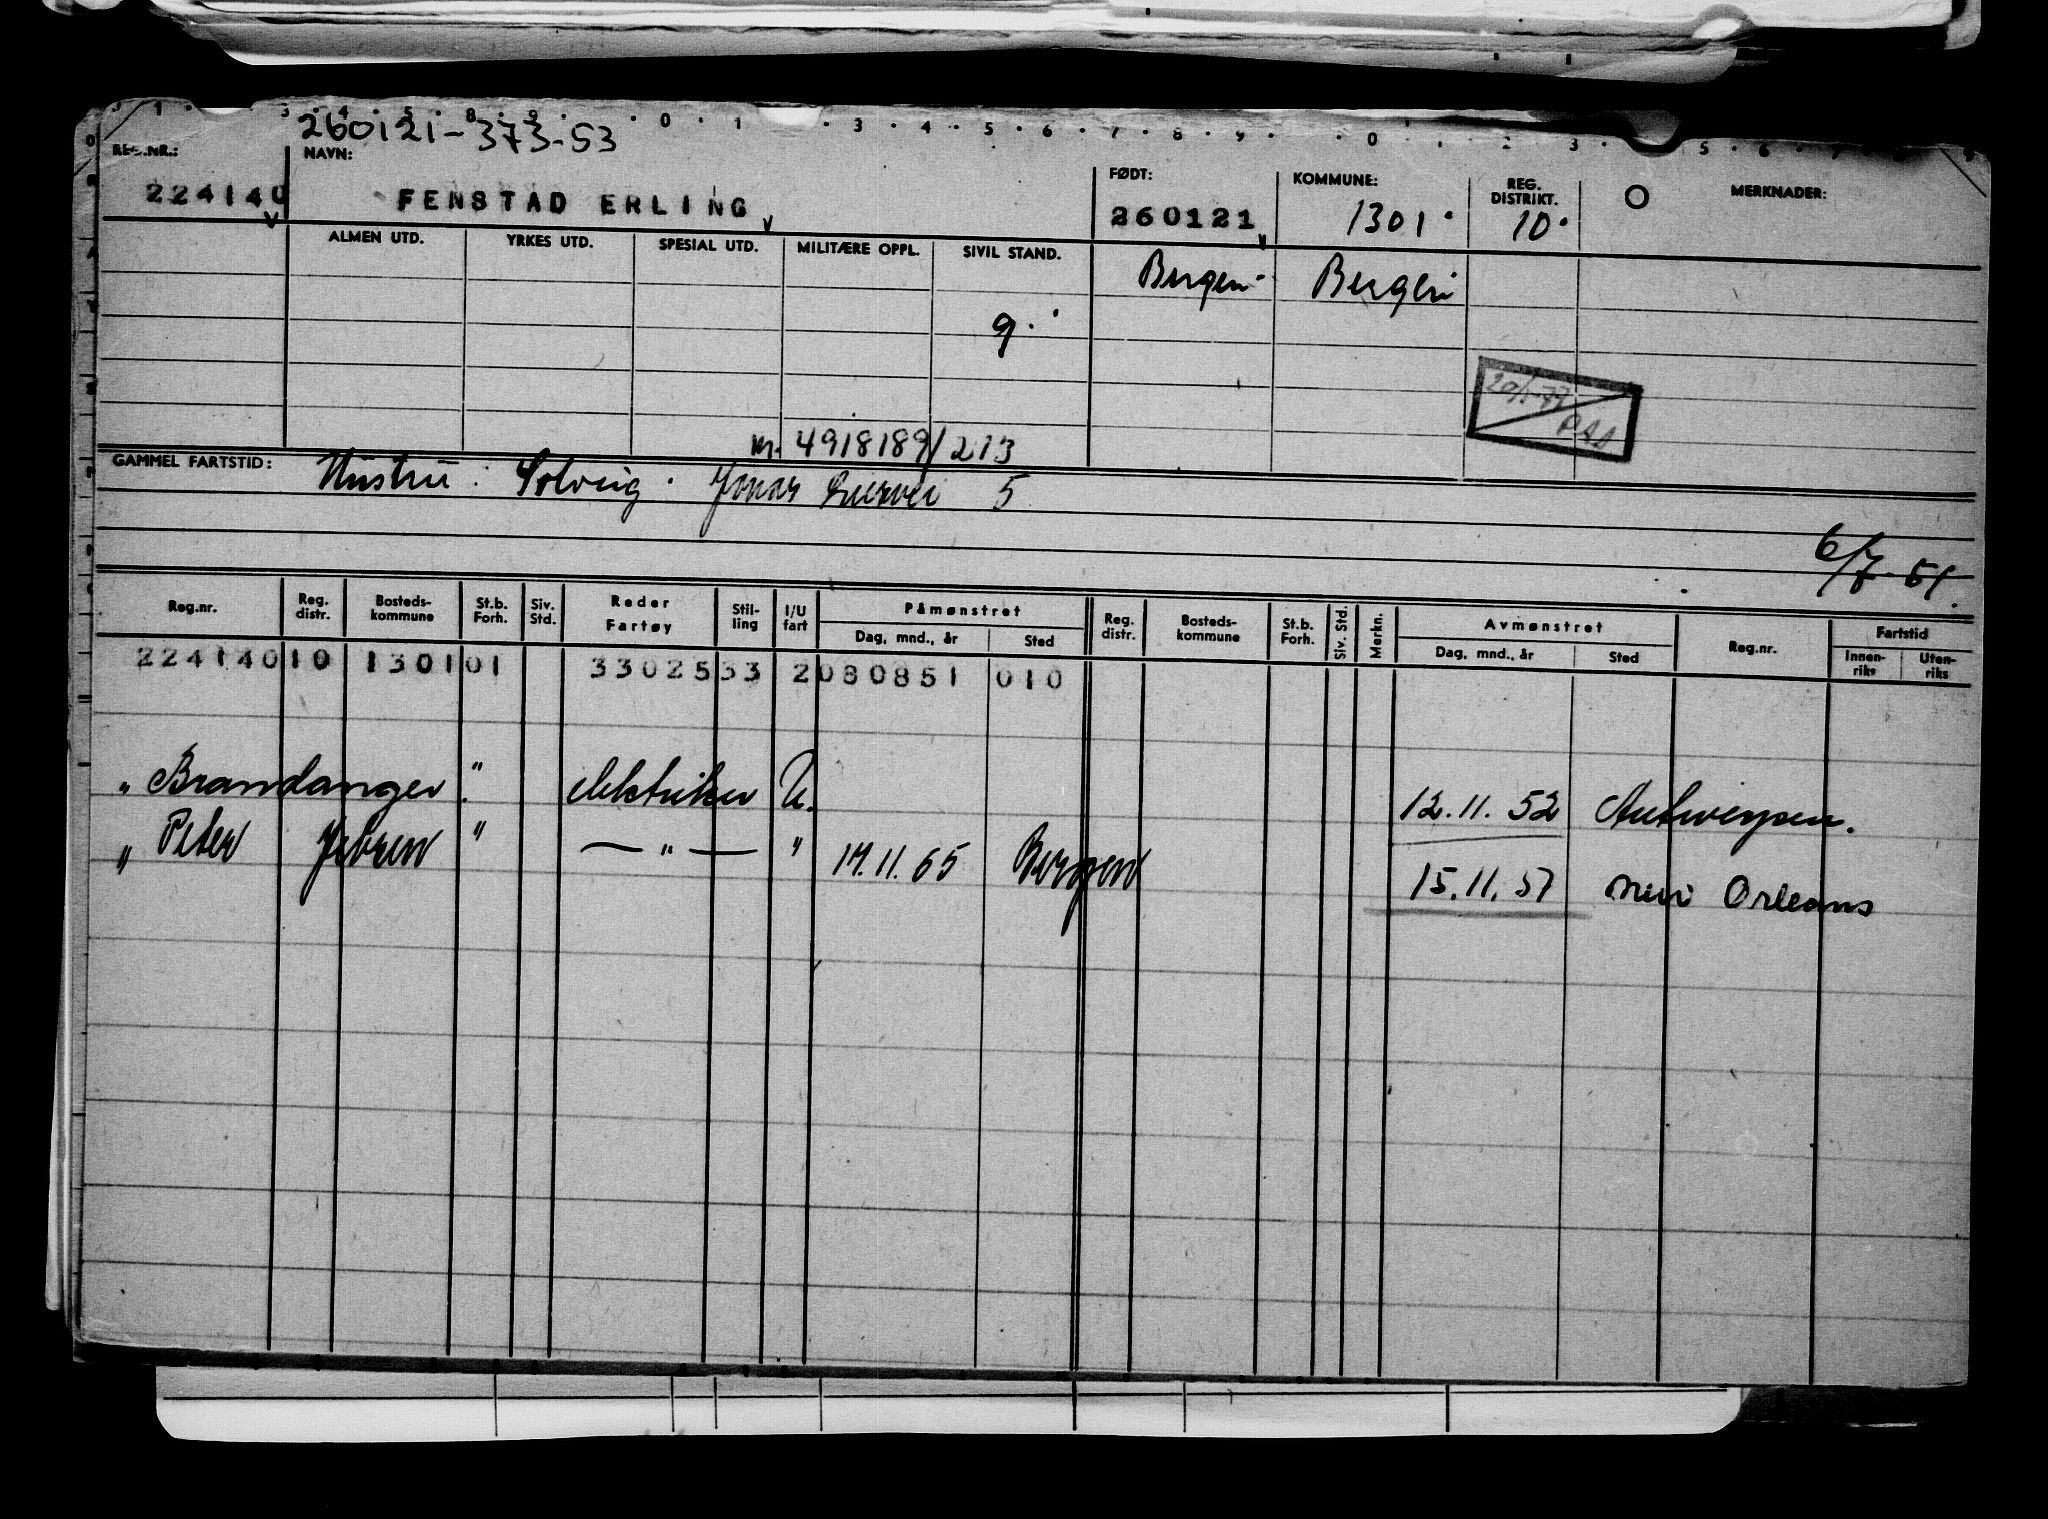 260121-373-53
REG.NR.: NAVN: FØDT: KOMMUNE: REG. DISTRIKT. MERKNADER:
224140 FENSTAD ERLING 260121 1301 10
ALMEN UTD. YRKES UTD. SPESIAL UTD. MILITÆRE OPPL. SIVIL STAND. Bergen Bergen
g.
nr. 4918189/213
GAMMEL FARTSTID: Hustru: Solveig. Jonas 5
6/7-51.
Reg.nr. Reg. distr. Bosteds-kommune St.b. Forh. Siv. Std. Reder Fartøy Stil-ling I/U fart Påmønstret Dag, mnd., år Sted Reg. distr. Bosteds-kommune St.b. Forh. Siv. Std. Merkn. Avmønstret Dag, mnd., år Sted Reg.nr. Fartstid Innen-riks Uten-riks
224140 10 1301 01 33025 53 2 080851 010
" Brandanger " elektriker U. 12.11.52 Antwerpen.
" Peter Jebsen " — " — " 14.11.65 Bergen 15.11.57 New Orleans